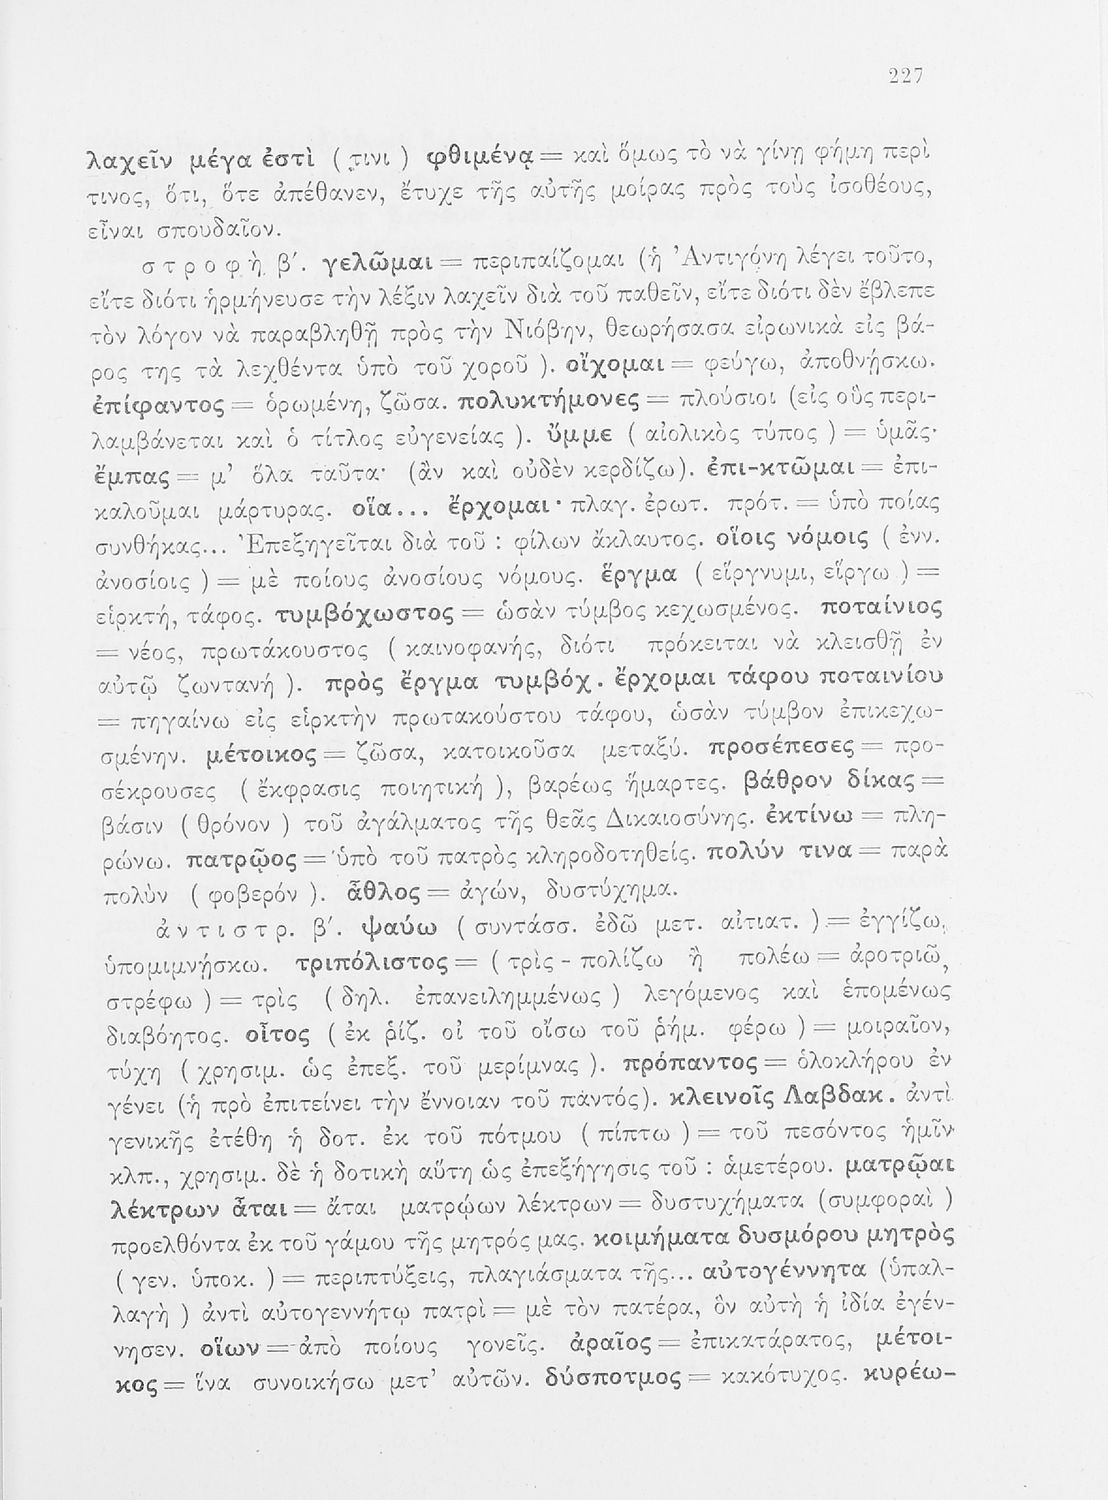 227
λαχεῖν μέγα ἐστὶ ( τινι ) φθιμένᾳ = καὶ ὅμως τὸ νὰ γίνῃ φήμη περὶ
τινος, ὅτι, ὅτε ἀπέθανεν, ἔτυχε τῆς αὐτῆς μοίρας πρὸς τοὺς ἰσοθέους,
εἶναι σπουδαῖον.
στροφὴ β′. γελῶμαι = περιπαίζομαι (ἡ Ἀντιγόνη λέγει τοῦτο,
εἴτε διότι ἡρμήνευσε τὴν λέξιν λαχεῖν διὰ τοῦ παθεῖν, εἴτε διότι δὲν ἔβλεπε
τὸν λόγον νὰ παραβληθῇ πρὸς τὴν Νιόβην, θεωρήσασα εἰρωνικὰ εἰς βά-
ρος της τὰ λεχθέντα ὑπὸ τοῦ χοροῦ ). οἴχομαι = φεύγω, ἀποθνῄσκω.
ἐπίφαντος = ὁρωμένη, ζῶσα. πολυκτήμονες = πλούσιοι (εἰς οὓς περι-
λαμβάνεται καὶ ὁ τίτλος εὐγενείας ). ὔμμε ( αἰολικὸς τύπος ) = ὑμᾶς·
ἔμπας = μ’ ὅλα ταῦτα· (ἂν καὶ οὐδὲν κερδίζω). ἐπι-κτῶμαι = ἐπι-
καλοῦμαι μάρτυρας. οἵα... ἔρχομαι· πλαγ. ἐρωτ. πρότ. = ὑπὸ ποίας
συνθήκας... Ἐπεξηγεῖται διὰ τοῦ : φίλων ἄκλαυτος. οἵοις νόμοις ( ἐνν.
ἀνοσίοις ) = μὲ ποίους ἀνοσίους νόμους. ἕργμα ( εἵργνυμι, εἵργω ) =
εἱρκτή, τάφος. τυμβόχωστος = ὡσὰν τύμβος κεχωσμένος. ποταίνιος
= νέος, πρωτάκουστος ( καινοφανής, διότι πρόκειται νὰ κλεισθῇ ἐν
αὐτῷ ζωντανή ). πρὸς ἕργμα τυμβόχ. ἔρχομαι τάφου ποταινίου
= πηγαίνω εἰς εἱρκτὴν πρωτακούστου τάφου, ὡσὰν τύμβον ἐπικεχω-
σμένην. μέτοικος = ζῶσα, κατοικοῦσα μεταξύ. προσέπεσες = προ-
σέκρουσες ( ἔκφρασις ποιητική ), βαρέως ἥμαρτες. βάθρον δίκας =
βάσιν ( θρόνον ) τοῦ ἀγάλματος τῆς θεᾶς Δικαιοσύνης. ἐκτίνω = πλη-
ρώνω. πατρῷος = ὑπὸ τοῦ πατρὸς κληροδοτηθείς. πολύν τινα = παρὰ
πολὺν ( φοβερόν ). ἆθλος = ἀγών, δυστύχημα.
ἀντιστρ. β′. ψαύω ( συντάσσ. ἐδῶ μετ. αἰτιατ. ) = ἐγγίζω,
ὑπομιμνῄσκω. τριπόλιστος = ( τρὶς - πολίζω ἢ πολέω = ἀροτριῶ,
στρέφω ) = τρὶς ( δηλ. ἐπανειλημμένως ) λεγόμενος καὶ ἑπομένως
διαβόητος. οἶτος ( ἐκ ῥίζ. οἰ τοῦ οἴσω τοῦ ῥήμ. φέρω ) = μοιραῖον,
τύχη ( χρησιμ. ὡς ἐπεξ. τοῦ μερίμνας ). πρόπαντος = ὁλοκλήρου ἐν
γένει (ἡ πρὸ ἐπιτείνει τὴν ἔννοιαν τοῦ πάντός). κλεινοῖς Λαβδακ. ἀντὶ
γενικῆς ἐτέθη ἡ δοτ. ἐκ τοῦ πότμου ( πίπτω ) = τοῦ πεσόντος ἡμῖν
κλπ., χρησιμ. δὲ ἡ δοτικὴ αὕτη ὡς ἐπεξήγησις τοῦ : ἁμετέρου. ματρῷαι
λέκτρων ἆται = ἄται ματρῴων λέκτρων = δυστυχήματα (συμφοραὶ )
προελθόντα ἐκ τοῦ γάμου τῆς μητρός μας. κοιμήματα δυσμόρου μητρὸς
( γεν. ὑποκ. ) = περιπτύξεις, πλαγιάσματα τῆς... αὐτογέννητα (ὑπαλ-
λαγὴ ) ἀντὶ αὐτογεννήτῳ πατρὶ = μὲ τὸν πατέρα, ὃν αὐτὴ ἡ ἰδία ἐγέν-
νησεν. οἵων = ἀπὸ ποίους γονεῖς. ἀραῖος = ἐπικατάρατος, μέτοι-
κος = ἵνα συνοικήσω μετ’ αὐτῶν. δύσποτμος = κακότυχος. κυρέω-